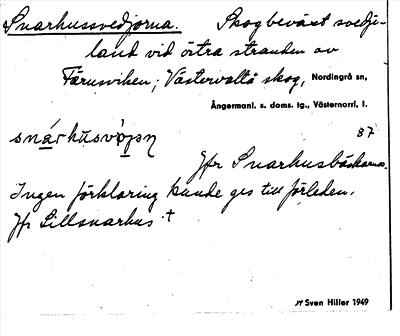 Snarhussvedjorna. Skogbeväxt svedje-
land vid östra stranden av
Färusviken; Västervalta skog, Nordingrå sn,
Ångermanl. s. doms. tg., Västernorrl. l.
87
Jfr Snarhusbäckarna.
Ingen förklaring kunde ges till förleden.
Jfr Lillsnarhus +
Sven Hiller 1949